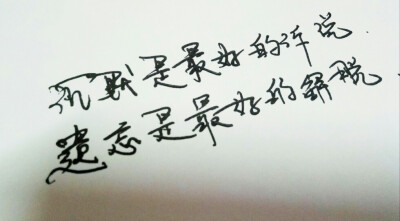 沉默是最好的诉说.
遗忘是最好的解脱.